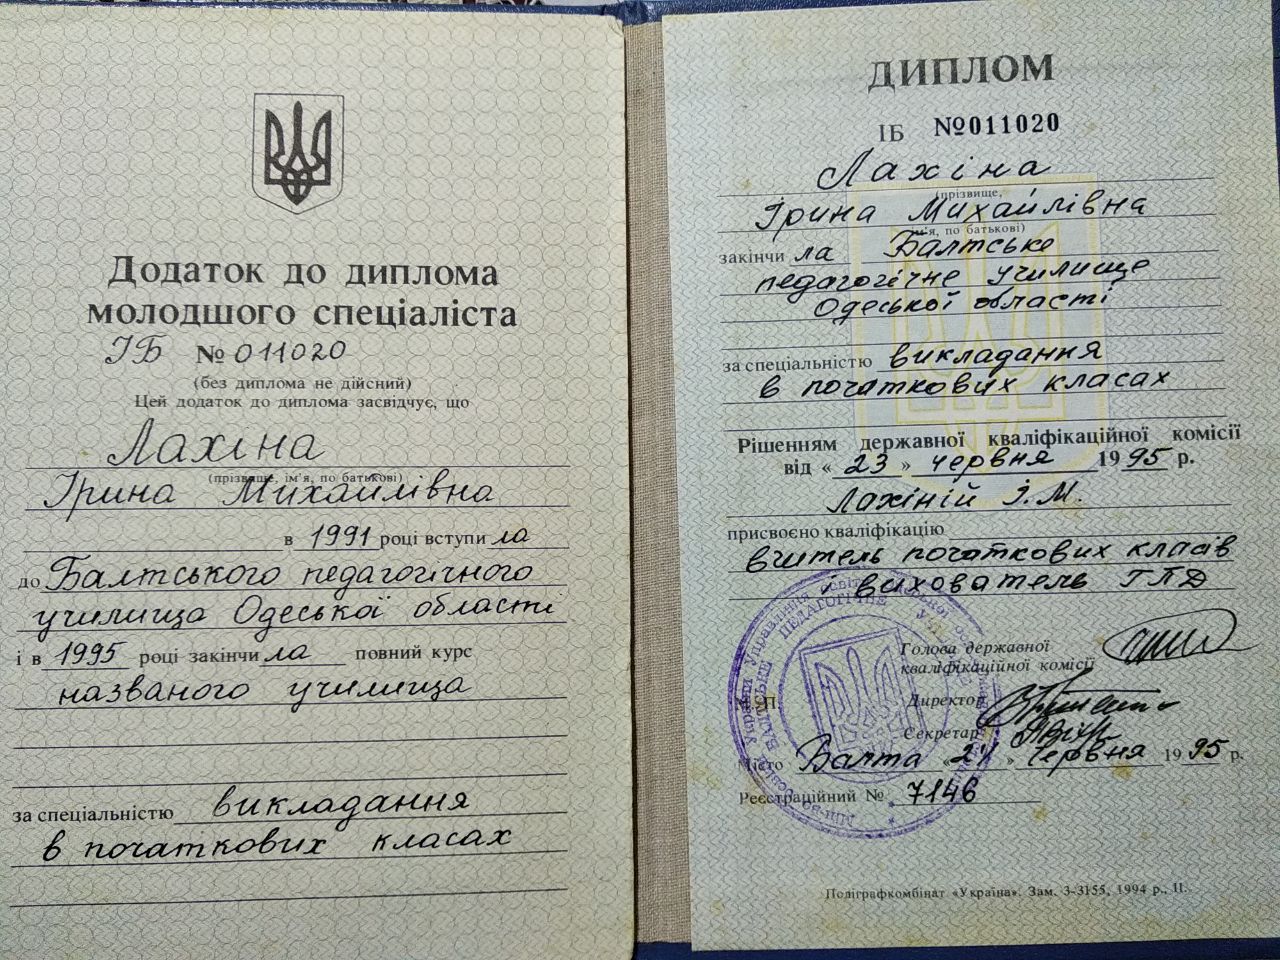 Додаток до диплома
молодшого спеціаліста
ІБ № 011020
(без диплома не дійсний)
Цей додаток до диплома засвідчує, що
Лахіна
(прізвище, ім'я, по батькові)
Ірина Михайлівна
в 1991 році вступила
до Балтського педагогічного
училища Одеської області
і в 1995 році закінчила повний курс
названого училища
за спеціальністю викладання
в початкових класах
ДИПЛОМ
ІБ №011020
Лахіна
(прізвище,
Ірина Михайлівна
ім'я, по батькові)
закінчила Балтське
педагогічне училище
Одеської області
за спеціальністю викладання
в початкових класах
Рішенням державної кваліфікаційної комісії
від «23» червня 1995 р.
Лахіній І.М.
присвоєно кваліфікацію
вчитель початкових класів
і вихователь ГПД
Голова державної
кваліфікаційної комісії
Директор
Секретар
Місто Балта «24» червня 1995 р.
Реєстраційний № 7146
Поліграфкомбінат «Україна». Зам. 3-3155, 1994 р., II.